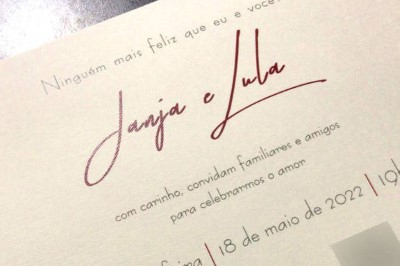 Ninguém mais feliz que eu e você!
Janja e Lula
com carinho, convidam familiares e amigos
para celebrarmos o amor
feira | 18 de maio de 2022 | 19h